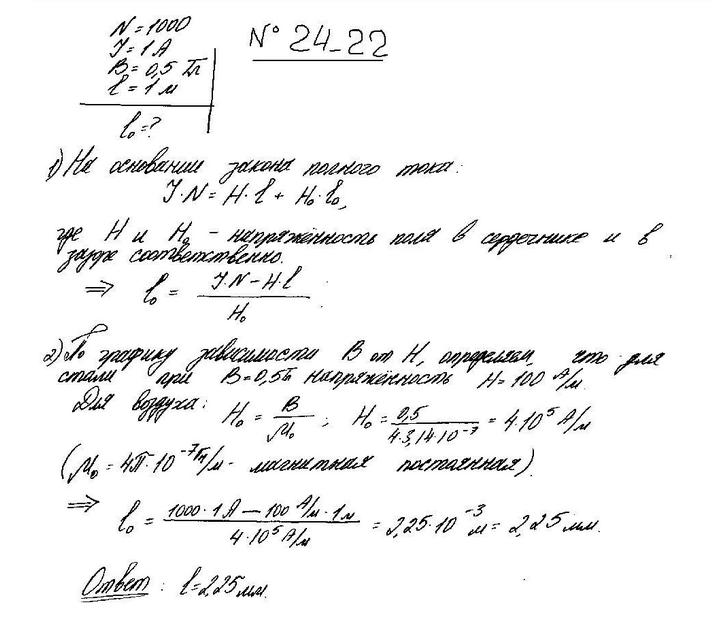 N = 1000
I = 1 А
B = 0,5 Тл
l = 1 м
l₀ = ?
№ 24-22
1) На основании закона полного тока:
I·N = H·l + H₀·l₀,
где H и H₀ - напряжённость поля в сердечнике и в
зазоре соответственно.
⇒ l₀ = (I·N - H·l) / H₀
2) По графику зависимости B от H, определяем, что для
стали при B = 0,5 Тл напряжённость H = 100 А/м.
Для воздуха: H₀ = B / μ₀ ; H₀ = 0,5 / (4·3,14·10⁻⁷) = 4·10⁵ А/м
(μ₀ = 4π·10⁻⁷ Гн/м - магнитная постоянная).
⇒ l₀ = (1000·1 А - 100 А/м·1 м) / (4·10⁵ А/м) = 2,25·10⁻³ м = 2,25 мм.
Ответ: l = 2,25 мм.